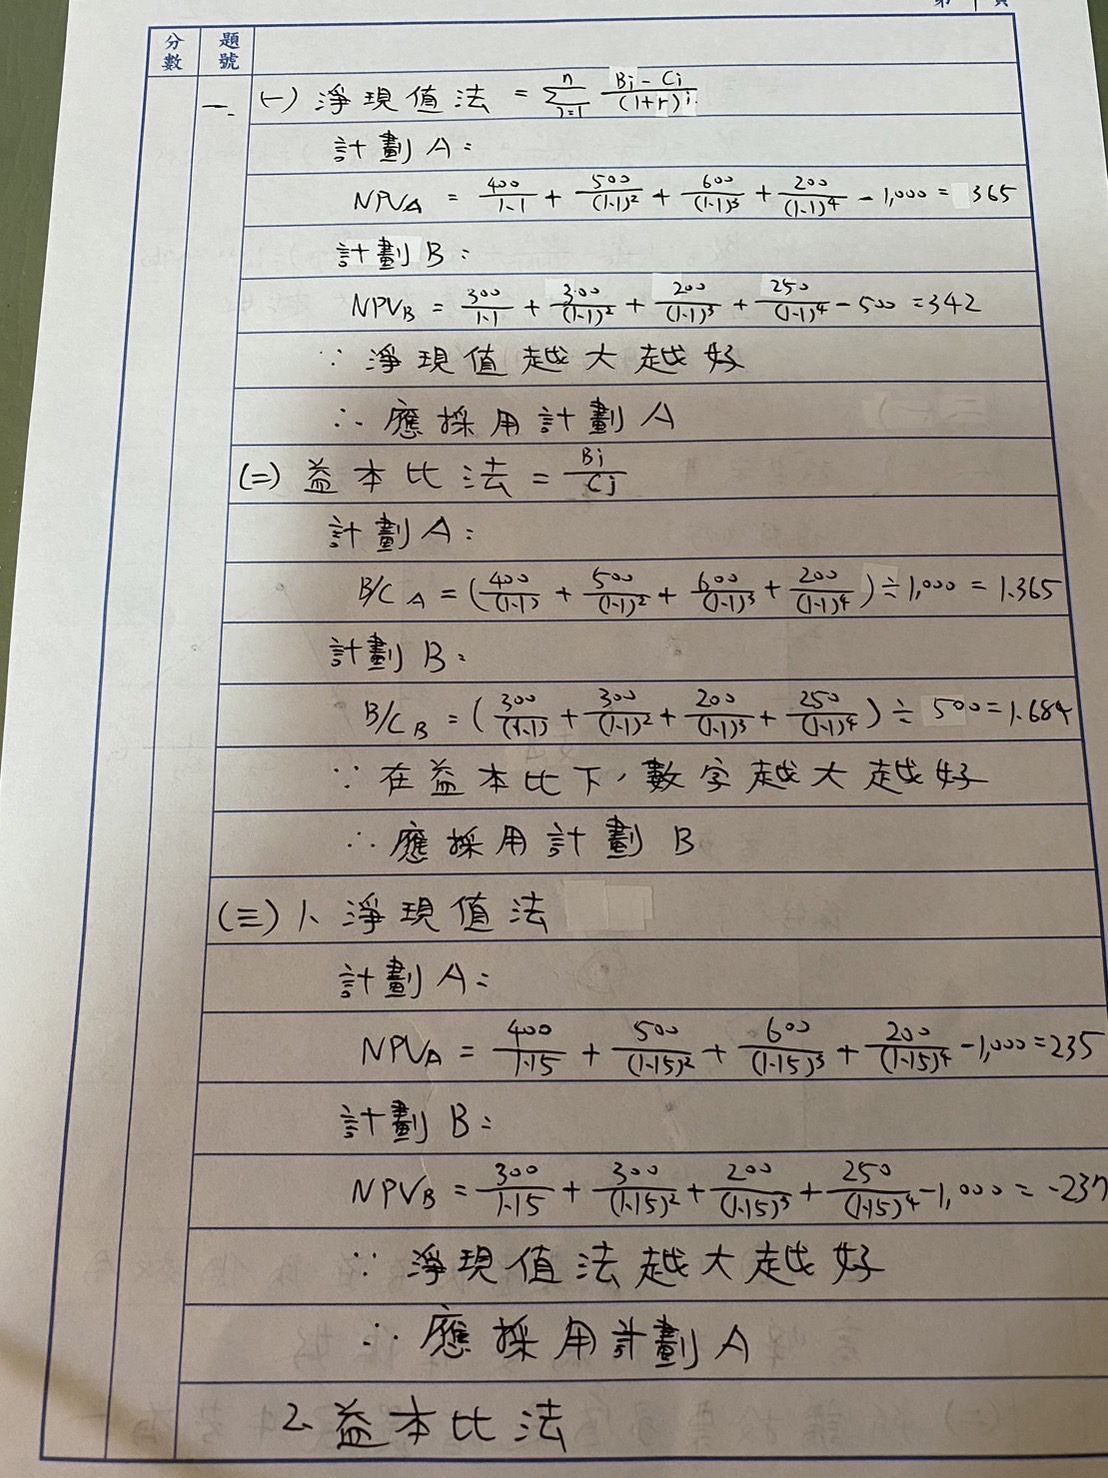 第1頁
分數 題號
一、(一) 淨現值法 = \sum_{j=1}^{n} \frac{Bj - Cj}{(1+r)^j}
計劃A:
NPV_A = \frac{400}{1.1} + \frac{500}{(1.1)^2} + \frac{600}{(1.1)^3} + \frac{200}{(1.1)^4} - 1,000 = 365
計劃B:
NPV_B = \frac{300}{1.1} + \frac{300}{(1.1)^2} + \frac{200}{(1.1)^3} + \frac{250}{(1.1)^4} - 500 = 342
∵ 淨現值越大越好
∴ 應採用計劃A
(二) 益本比法 = \frac{Bj}{Cj}
計劃A:
B/C_A = (\frac{400}{(1.1)} + \frac{500}{(1.1)^2} + \frac{600}{(1.1)^3} + \frac{200}{(1.1)^4}) ÷ 1,000 = 1.365
計劃B:
B/C_B = (\frac{300}{(1.1)} + \frac{300}{(1.1)^2} + \frac{200}{(1.1)^3} + \frac{250}{(1.1)^4}) ÷ 500 = 1.684
∵ 在益本比下,數字越大越好
∴ 應採用計劃B
(三) 1、淨現值法
計劃A:
NPV_A = \frac{400}{1.15} + \frac{500}{(1.15)^2} + \frac{600}{(1.15)^3} + \frac{200}{(1.15)^4} - 1,000 = 235
計劃B:
NPV_B = \frac{300}{1.15} + \frac{300}{(1.15)^2} + \frac{200}{(1.15)^3} + \frac{250}{(1.15)^4} - 1,000 = -237
∵ 淨現值法越大越好
∴ 應採用計劃A
2、益本比法